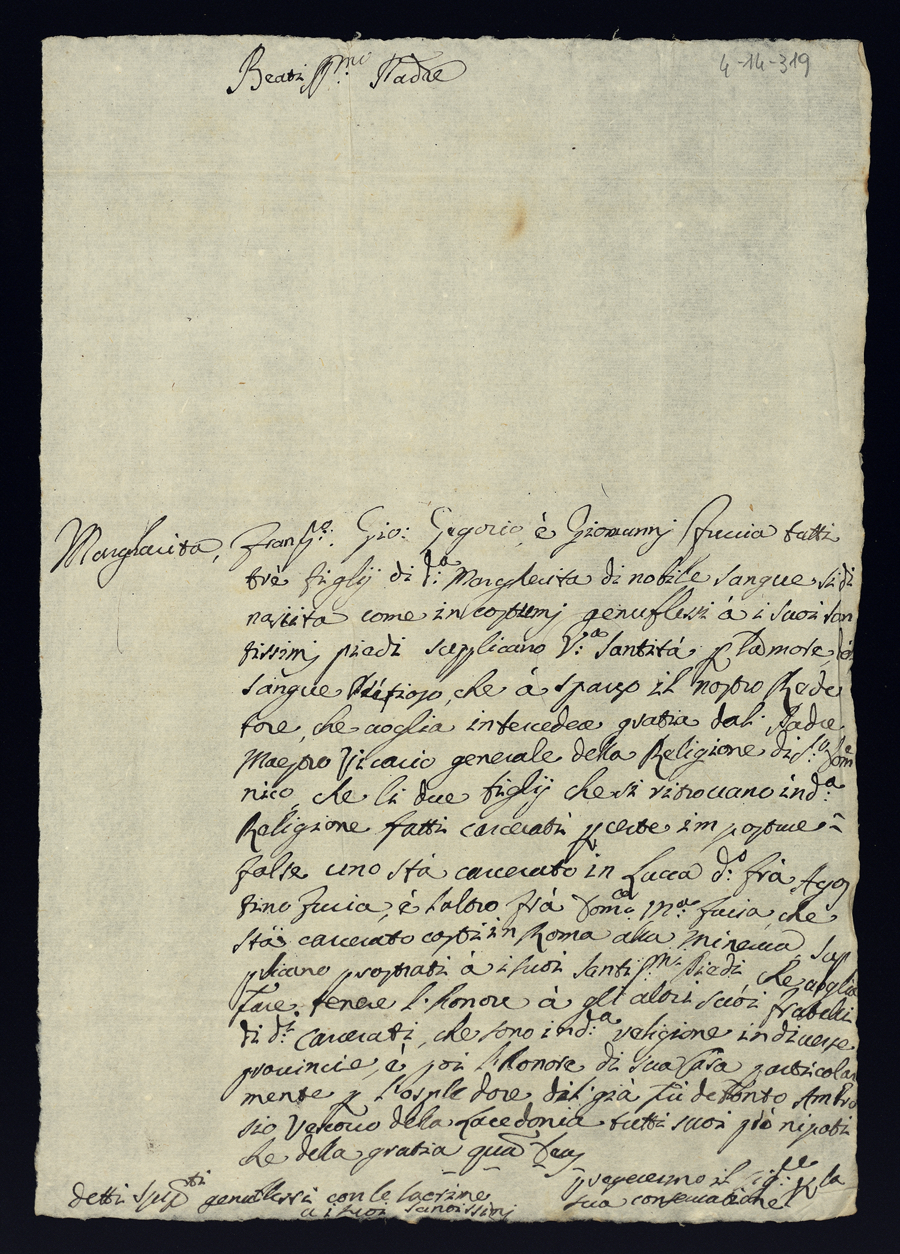 Beatiss.mo Padre
4-14-319
Margharita, Fran.co: Gio: Gregorio, è Giovannj tutti
trè figlij di d.a Margherita di nobile sangue si di
nascita come in costumj genuflessi à i suoi san
tissimj piedi supplicano V.a Santità p l'amore, è
sangue che à sparso il nostro Rede
tore, che voglia intercedere gratia dal Padre
Maestro Vicario generale della Religione di S.to Dom
nico, che li due figlij che si ritrovano in d.a
Religione fatti carcerati p certe imposture
false uno stà carcerato in Lucca d.o frà Agos
tino è l'altro frà Dom.co M.a che
stà carcerato costì in Roma alla minerva sup
plicano prostrati à i suoi santi.mi Piedi che voglia
fare tenere l'honore à gl'altri suoi fratelli
di d.i carcerati, che sono in d.a religione in diverse
provincie, è poi l'honore di sua Casa particolar
mente p l'osple dore del già fù Ambro
sio Vescovo della Lacedonia tutti suoi pro nipoti
che della gratia qua Deus
detti genuflessi con le lacrime
a i suoi santissimj
pregeremo il Sig.re p la
sua conservatione